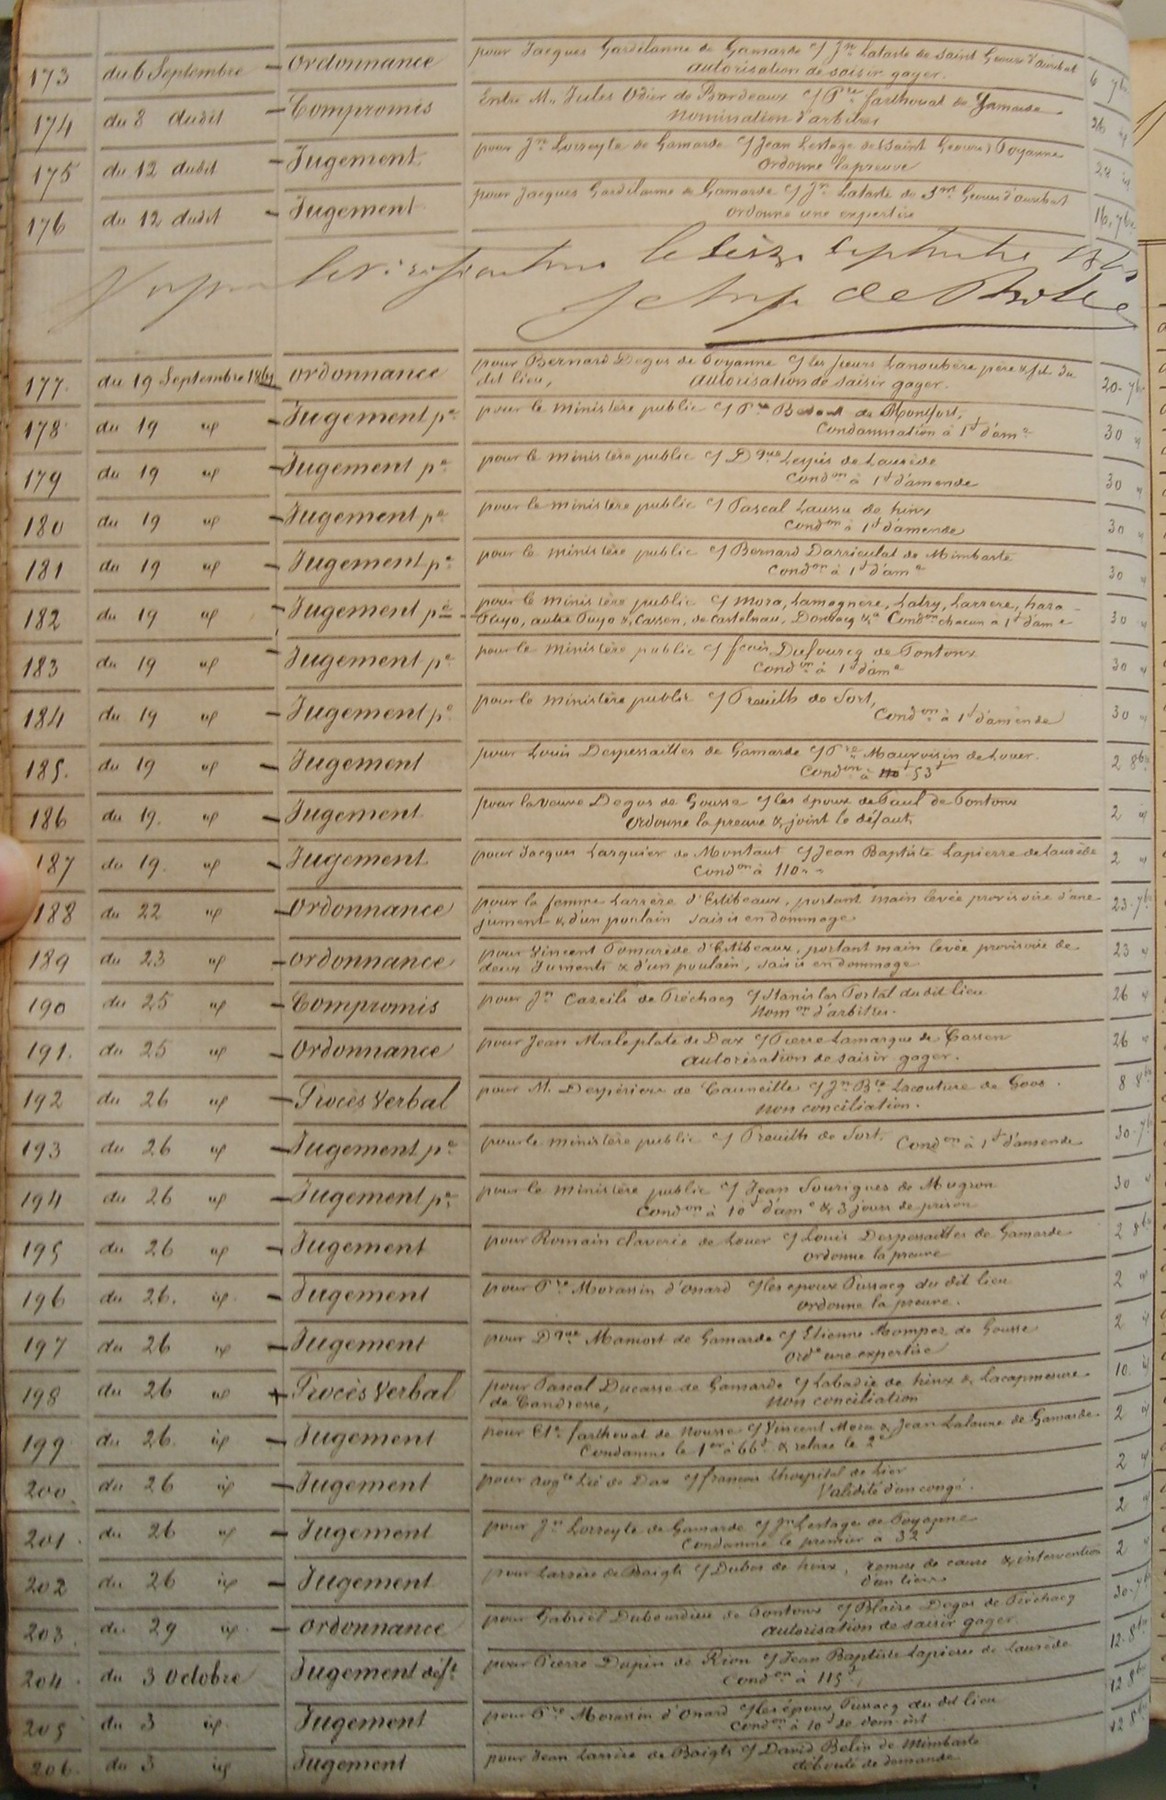 173 du 6 Septembre - ordonnance pour Jacques Gardilanne de Gamarde c/ Jn Lataste de Saint Geours d'auribat 6 7bre
autorisation de saisir gager.
174 du 8 dudit - Compromis Entre Mr Jules Odier de Bordeaux c/ Pre farthouat de Gamarde 26 id
Nomination d'arbitres
175 du 12 dudit - Jugement pour Jn Lorreyte de Gamarde c/ Jean Lestage de Saint Geours & Poyanne 28 id
ordonne la preuve
176 du 12 dudit - Jugement pour Jacques Gardilanne de Gamarde c/ Jn Lataste de Snt Geours d'auribat 16. 7bre
ordonne une expertise
le seize septembre
177. du 19 Septembre ordonnance pour Bernard Degos de Poyanne c/ les sieurs Lanoubère père & fils du 20. 7bre
dit lieu, autorisation de saisir gager.
178 du 19 id - Jugement pce pour le ministère public c/ Pre de Montfort, 30 id
Condamnation à 1f d'ame
179 du 19 id - Jugement pce pour le ministère public c/ Dque Lespès de Laurède 30 id
Condon à 1f d'amende
180 du 19 id - Jugement pce pour le ministère public c/ Pascal Laussu de hinx 30 id
Condon à 1f d'amende
181 du 19 id - Jugement pce pour le ministère public c/ Bernard Darriculat de Mimbaste 30 id
Condon à 1f d'ame
182 du 19 id - Jugement pce pour le ministère public c/ Mora, Lamagnère, Latry, Larrere, hara - 30 id
Puyo, autre Puyo &, Cassen, de Castelnau, Donzacq &a Condon chacun à 1f d'ame
183 du 19 id - Jugement pce pour le ministère public c/ fcois Dufourcq de Pontonx 30 id
Condon à 1f d'ame
184 du 19 id - Jugement pce pour le ministère public c/ Preuilh de Sort, 30 id
Condon à 1f d'amende
185. du 19 id - Jugement pour Louis Despessailles de Gamarde c/ Pre Mauvoisin de Louer. 2 8bre
Condon à 53f
186 du 19. id - Jugement pour la veuve Degos de Gousse c/ les époux de Paul de Pontonx 2 id
ordonne la preuve & joint le défaut,
187 du 19. id - Jugement pour Jacques Larquier de Montaut c/ Jean Baptiste Lapierre de Laurède 2 id
Condon à 110
188 du 22 id - ordonnance pour la femme Larrère d'Estibeaux, portant main levée provisoire d'une 23. 7bre
jument & d'un poulain saisis en dommage
189 du 23 id - ordonnance pour Vincent Pomarède d'Estibeaux, portant main levée provisoire de 23 id
deux Juments & d'un poulain, saisis en dommage
190 du 25 id - Compromis pour Jn Cazeils de Préchacq c/ Stanislas Portal du dit lieu 26 id
Nomon d'arbitres.
191. du 25 id - Ordonnance pour Jean Maleplate de Dax c/ Pierre Lamarque de Cassen 26 id
autorisation de saisir gager.
192 du 26 id - Procès Verbal pour M. Despériers de Cauneille c/ Jn Bte Lacouture de Goos. 8 8bre
non conciliation.
193 du 26 id - Jugement pce pour le ministère public c/ Preuilh de Sort, Condon à 1f d'amende 30. 7bre
194 du 26 id - Jugement pce pour le ministère public c/ Jean Sourigues de Mugron 30 id
Condon à 10f d'ame & 3 jours de prison
195 du 26 id - Jugement pour Romain Claverie de Louer c/ Louis Despessailles de Gamarde 2 8bre
ordonne la preuve
196 du 26. id - Jugement pour Pre Morassin d'onard c/ les époux Pussacq du dit lieu 2 id
ordonne la preuve.
197 du 26 id - Jugement pour Dque Maniort de Gamarde c/ Etienne Mompez de Gousse 2 id
orde une expertise
198 du 26 id - Procès Verbal pour Pascal Ducasse de Gamarde c/ Labadie de hinx & Lacapmesure 10. id
de Candresse, non conciliation
199 du 26. id - Jugement pour farthouat de Nousse c/ Vincent Mora & Jean Lalanne de Gamarde 2 id
Condamne le 1er à 66f & relaxe le 2e
200. du 26 id - Jugement pour de Dax c/ françois Lhospital de hier 2 id
Validité d'un congé.
201. du 26 id - Jugement pour Jn Lorreyte de Gamarde c/ Jn Lestage de Poyanne 2 id
Condamne le premier à 32
202 du 26 id - Jugement pour Larrère de Baigts c/ Dubos de hinx, remise de cause & intervention 2 id
d'un tiers
203. du 29 id. - ordonnance pour Gabriel Dubourdieu de Pontonx c/ Blaise Degos de Préchacq 30. 7bre
autorisation de saisir gager.
204. du 3 Octobre Jugement déft pour Pierre Dupin de Rion c/ Jean Baptiste Lapierre de Laurède 12. 8bre
Condon à 115f
205 du 3 id. Jugement pour Pre Morassin d'Onard c/ les époux Pussacq du dit lieu 12 8bre
Condon à 10f de dom. int.
206. du 3 id Jugement pour Jean Larrère de Baigts c/ David Belin de Mimbaste 12 8bre
débouté de demande